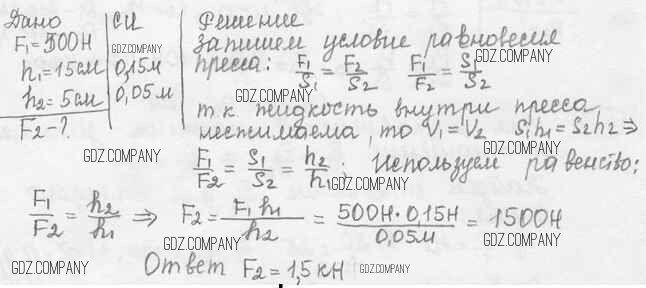 Дано
F₁=500Н
h₁=15см
h₂=5см
F₂-?
СИ
GDZ.COMPANY
0,15м
0,05м
Решение
Запишем условие равновесия
пресса: F₁/S₁ = F₂/S₂ F₁/F₂ = S₁/S₂
GDZ.COMPANY GDZ.COMPANY
т.к. жидкость внутри пресса
несжимаема, то V₁=V₂ S₁h₁=S₂h₂ ⇒
GDZ.COMPANY GDZ.COMPANY
F₁/F₂ = S₁/S₂ = h₂/h₁. Используем равенство:
GDZ.COMPANY
F₁/F₂ = h₂/h₁ ⇒ F₂ = F₁h₁/h₂ = 500Н·0,15Н/0,05м = 1500Н
GDZ.COMPANY GDZ.COMPANY
GDZ.COMPANY
Ответ F₂=1,5кН GDZ.COMPANY